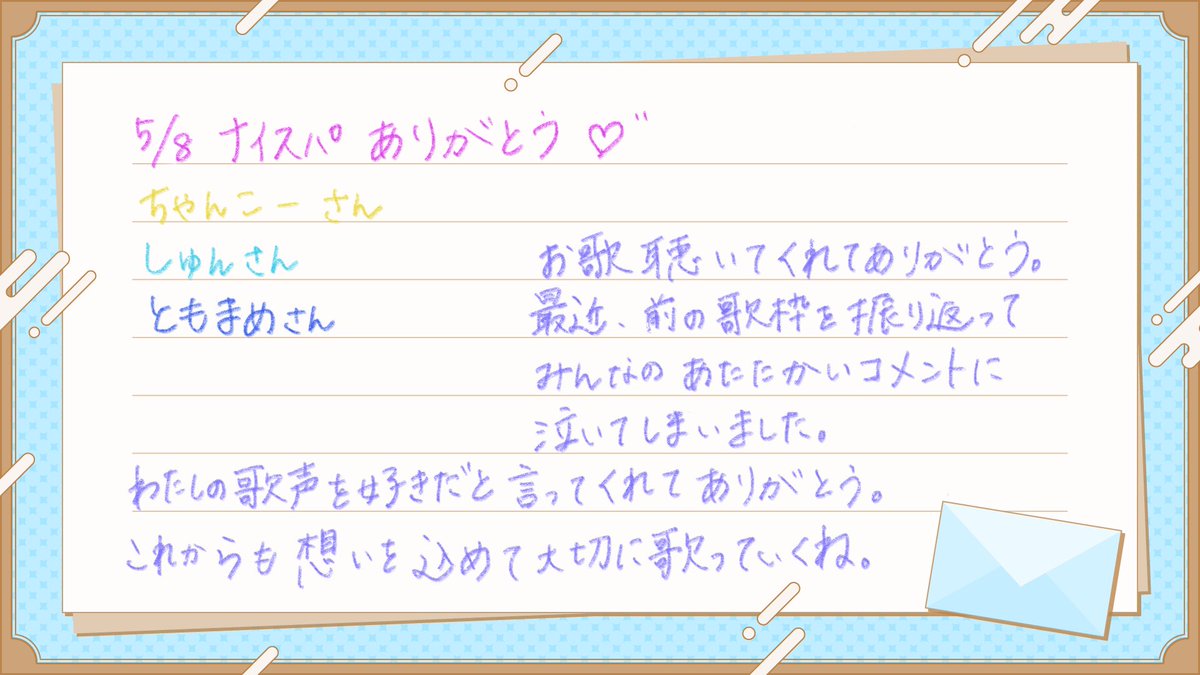 5/8 ナイスパ ありがとう ♡
ちゃんこー さん
しゅんさん
ともまめさん
お歌 聴いてくれてありがとう。
最近、前の歌枠を振り返って
みんなの あたたかいコメントに
泣いてしまいました。
わたしの歌声を好きだと言ってくれて ありがとう。
これからも 想いを込めて大切に歌っていくね。